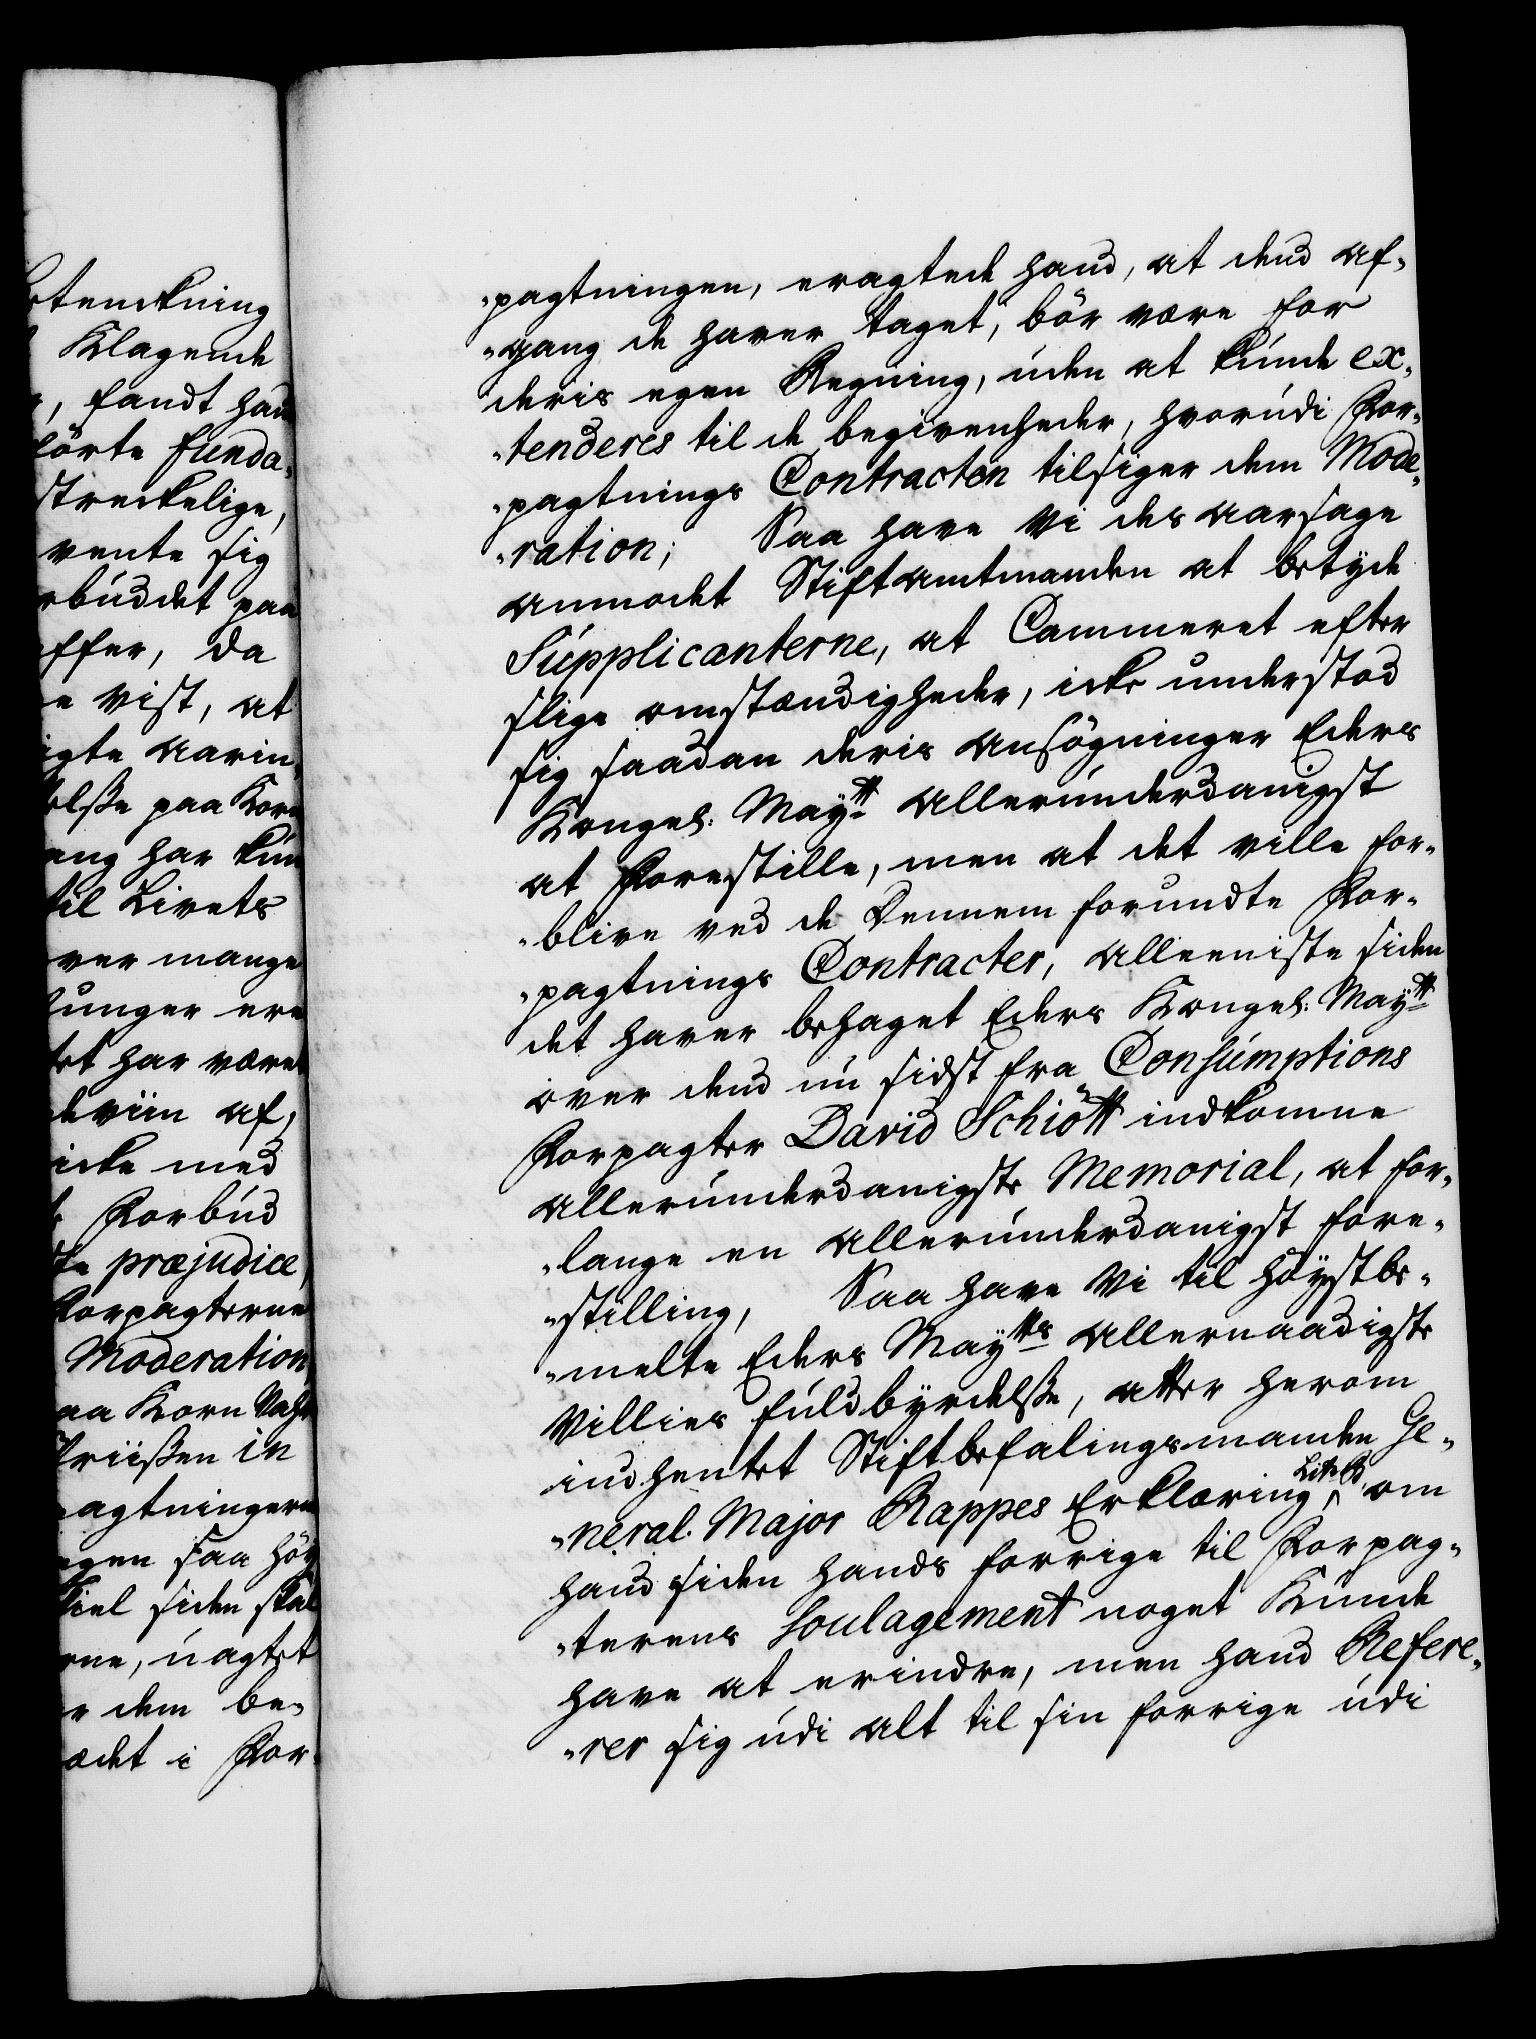 etenckning
Klagende
, fandt hand
förte funda-
streckelige,
vente sig
rbuddet paa
ffer, da
e vist, at
igte aarin-
elsse paa Korn
ang har kun
til Livets
ver mange
unger ere
et har været
af,
icke med
Forbud
te præjudice,
Forpagterne
Moderation
aa Korn
Priissen in
agtningerne
gen saa höy
siden skal
rne, uagtet
r dem be-
ædet i For-
-pagtningen, eragtede hand, at dend af-
-gang de haver taget, bör være for
deris egen Regning, uden at kunde ex-
-tenderes til de begivenheder, hvorudi For-
-pagtnings Contracten tilsiger dem Mode-
-ration; Saa have Vi des aarsage
anmodet Stiftamtmanden at betyde
Supplicanterne, at Cammeret efter
slige omstændigheder, icke understod
sig saadan deris ansögninger Eders
Kongel: Maytt allerunderdanigst
at forestille, men at det ville for-
-blive ved de Dennem forundte For-
-pagtnings Contracter, alleeniste siden
det haver behaget Eders Kongel: Maytt
over dend nu sidst fra Consumptions
Forpagter David Schiött indkomne
allerunderdanigste Memorial, at for-
-lange en allerunderdanigst fore-
-stilling, Saa have Vi til höystbe-
-melte Eders Maytts allernaadigste
Villies fuldbyrdelsse, atter herom
indhentet Stiftbefalingsmanden Ge-
-neral. Major Rappes Erklæring, Lit: B om
hand siden hands forrige til Forpag-
-terens Soulagement noget kunde
have at erindre, men hand Refere-
-rer sig udi alt til sin forrige udi